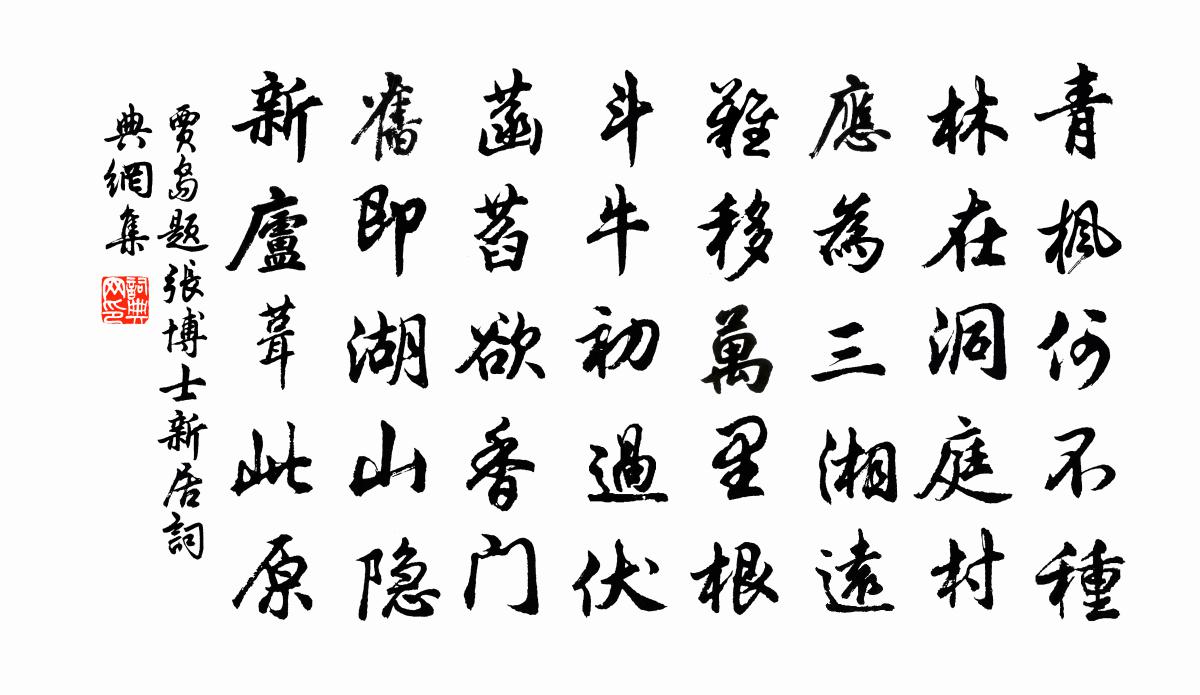 青楓何不種
林在洞庭村
應為三湘遠
難移萬里根
斗牛初過伏
菡萏欲香門
舊即湖山隐
新廬葺此原
賈島题張博士新居詞
典網集
詞典
网印